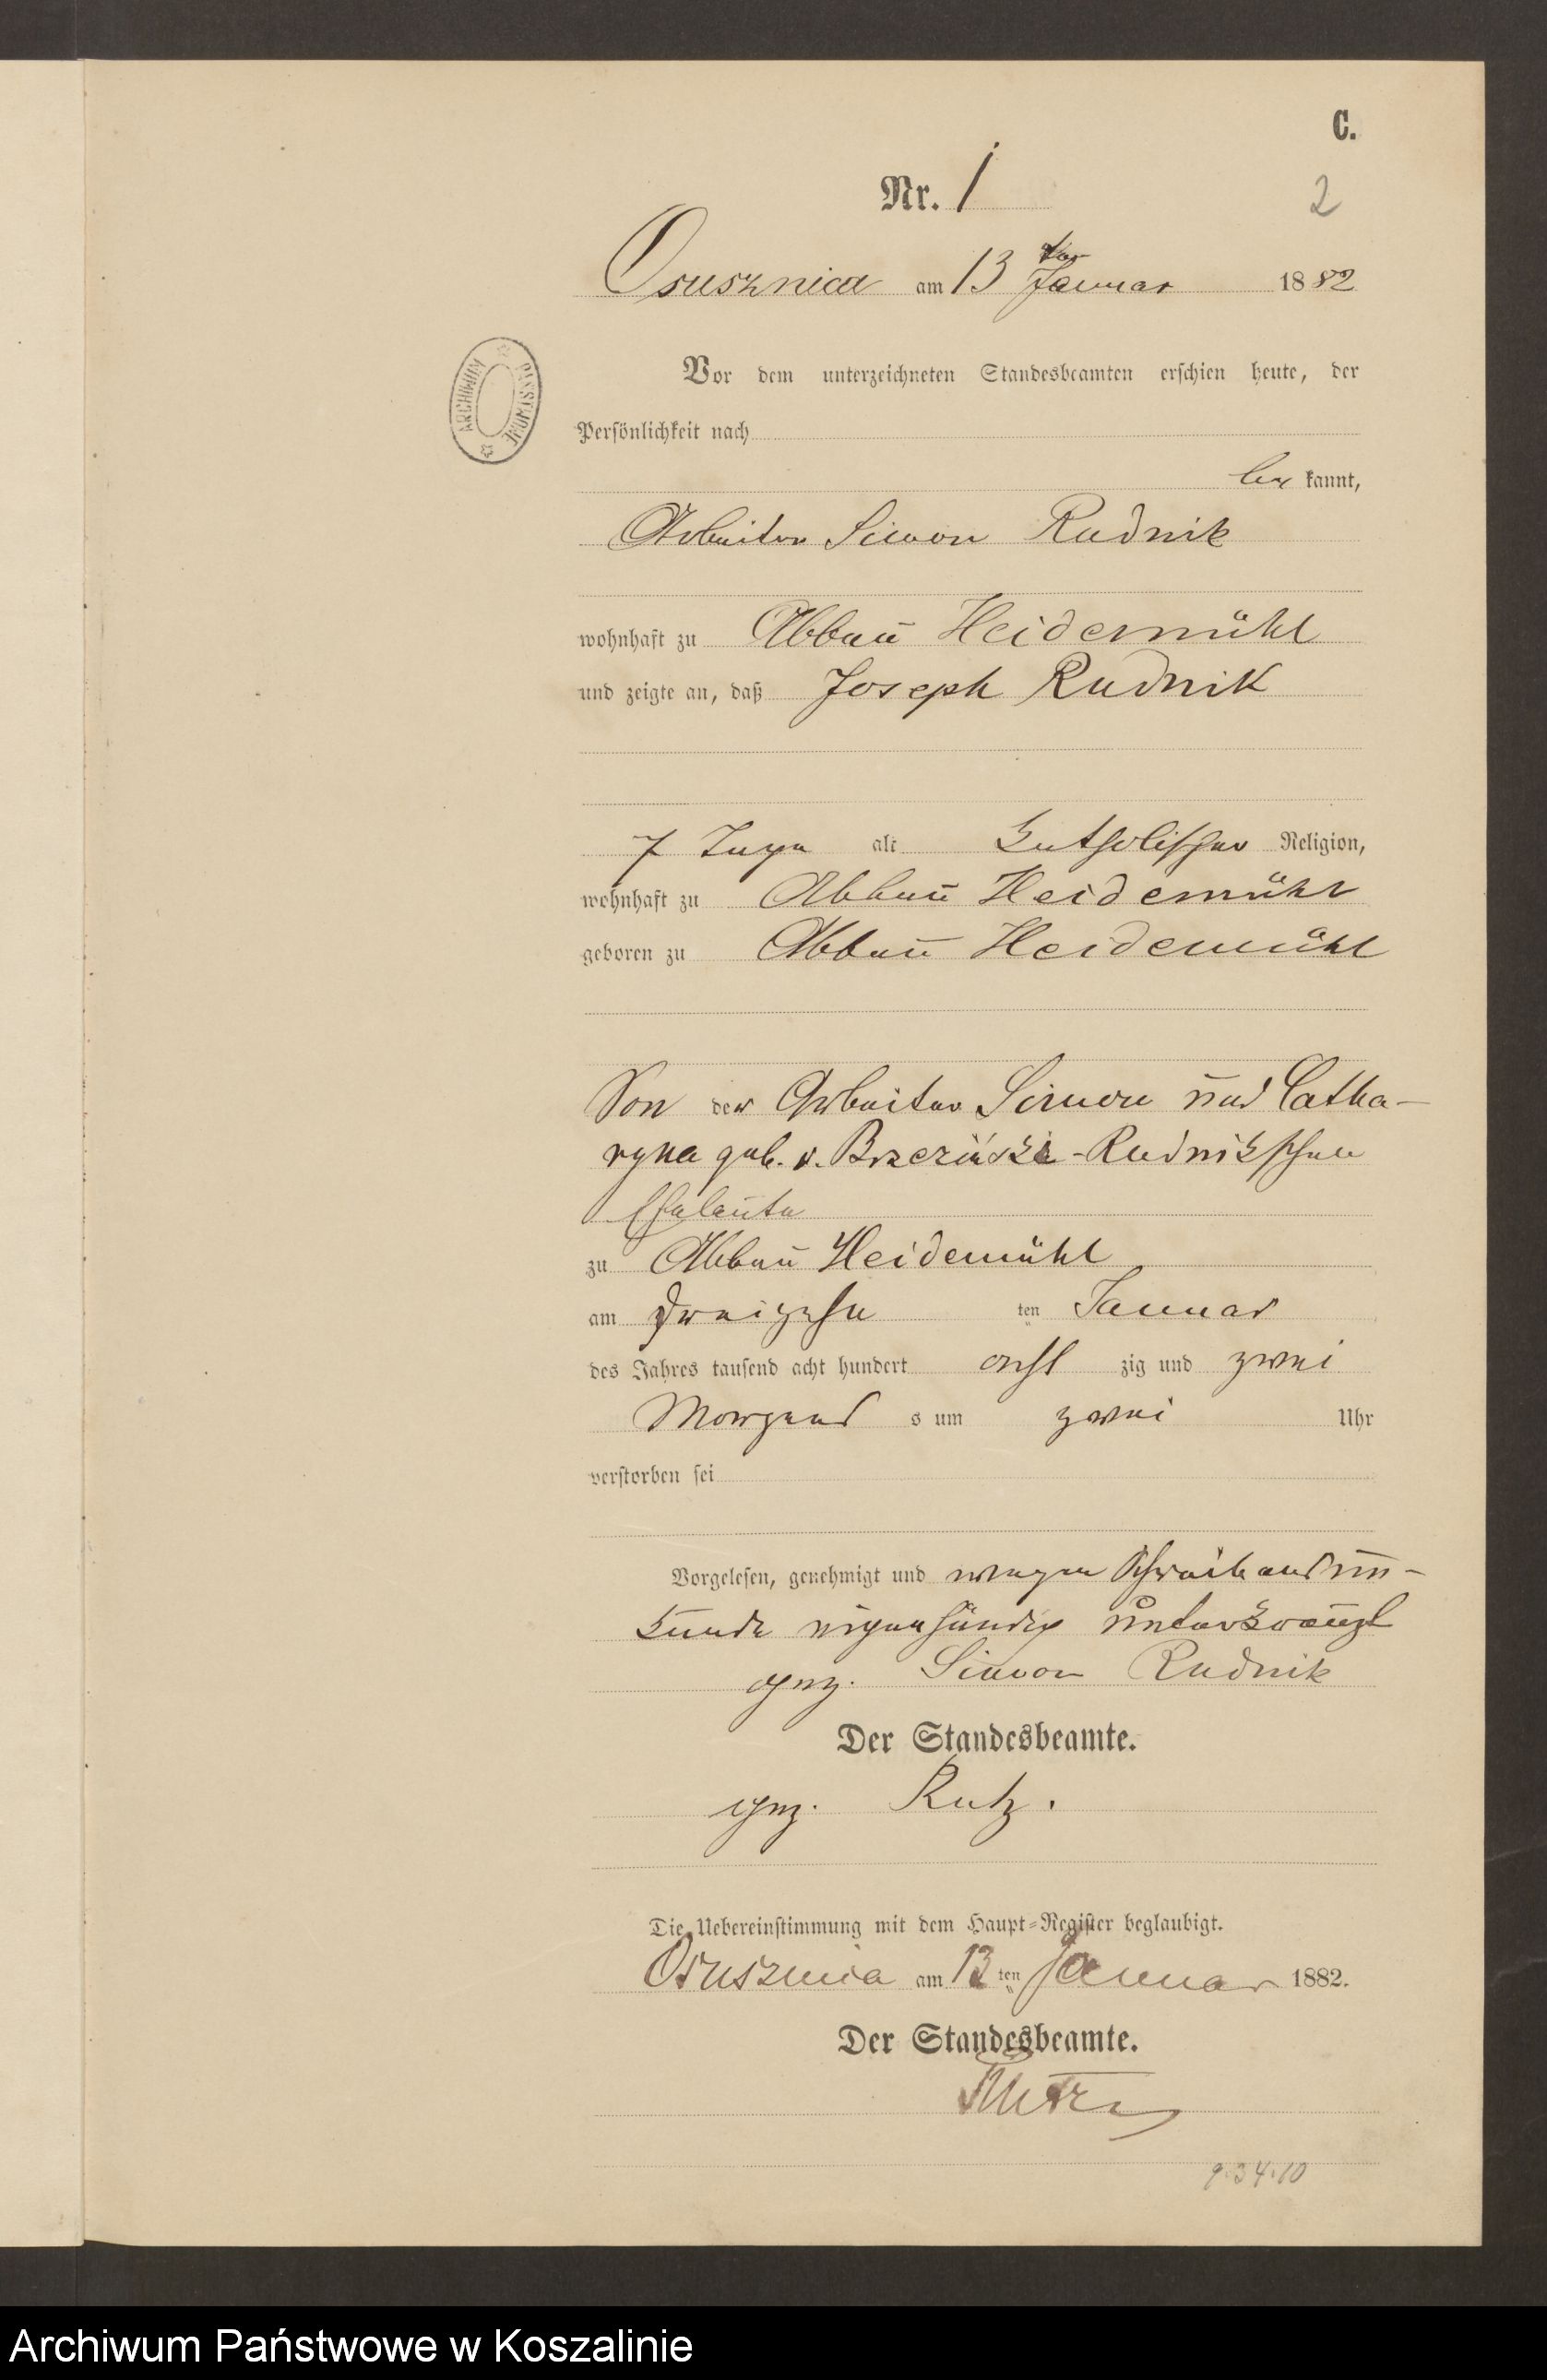 C.
Nr. 1
2
Osusznica am 13 ten Januar 1882
Vor dem unterzeichneten Standesbeamten erschien heute, der
Persönlichkeit nach
be kannt,
Arbeiter Simon Rudnik
wohnhaft zu Abbau Heidemühl
und zeigte an, daß Joseph Rudnik
7 Tage alt katholischer Religion,
wohnhaft zu Abbau Heidemühl
geboren zu Abbau Heidemühl
Son der Arbeiter Simon und Catha-
ryna geb. v. Brzeziński-Rudnikschen
Eheleute
zu Abbau Heidemühl
am dreizehn ten Januar
des Jahres tausend acht hundert acht zig und zwei
Morgens s um zwei Uhr
verstorben sei
Vorgelesen, genehmigt und wegen Schreibensun-
kunde eigenhändig unterkreuzt
gez. Simon Rudnik
Der Standesbeamte.
gez. Rutz.
Die Uebereinstimmung mit dem Haupt-Register beglaubigt.
Osusznica am 13 ten Januar 1882.
Der Standesbeamte.
Rutz
9.34.10
ARCHIWUM PAŃSTWOWE
Archiwum Państwowe w Koszalinie